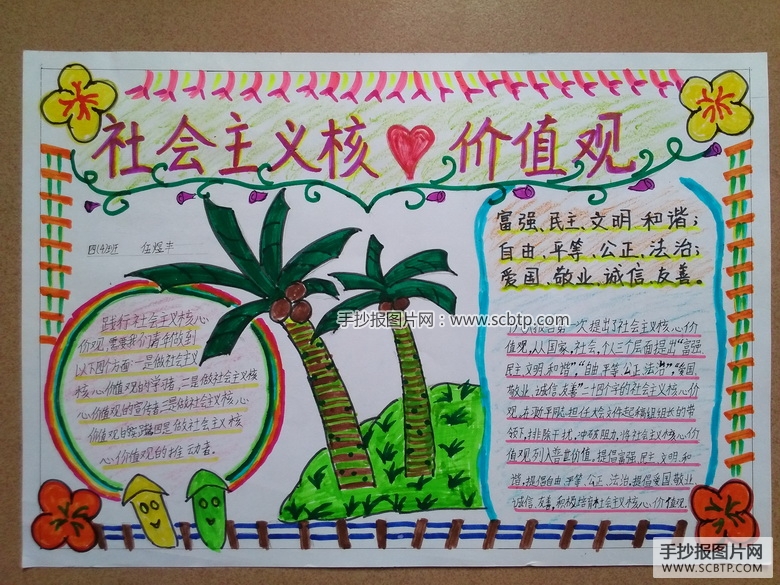 社会主义核 价值观
四(4)班 任煜丰
富强、民主、文明、和谐；
自由、平等、公正、法治；
爱国、敬业、诚信、友善。
手抄报图片网：www.scbtp.com
践行社会主义核心
价值观,需要我们青年做到
以下四个方面一是做社会主义
核心价值观的学习者,二是做社会主义核
心价值观的宣传者三是做社会主义核心
价值观的实践四是做社会主义核
心价值观的推动者。
报告第一次提出了社会主义核心价
值观,从国家,社会,个人三个层面提出"富强、
民主 文明 和谐","自由 平等 公正 法治","爱国、
敬业、诚信、友善"二十四个字的社会主义核心价
观,在 担任大会文件起 组组长的带
领下,排除干扰,冲破阻力,将社会主义核心价
值观列入 价值。提倡富强、民主、文明、和
谐,提倡自由、平等、公正、法治,提倡爱国敬业
诚信、友善,积极培育社会主义核心价值观。
手抄报图片网
WWW.SCBTP.COM